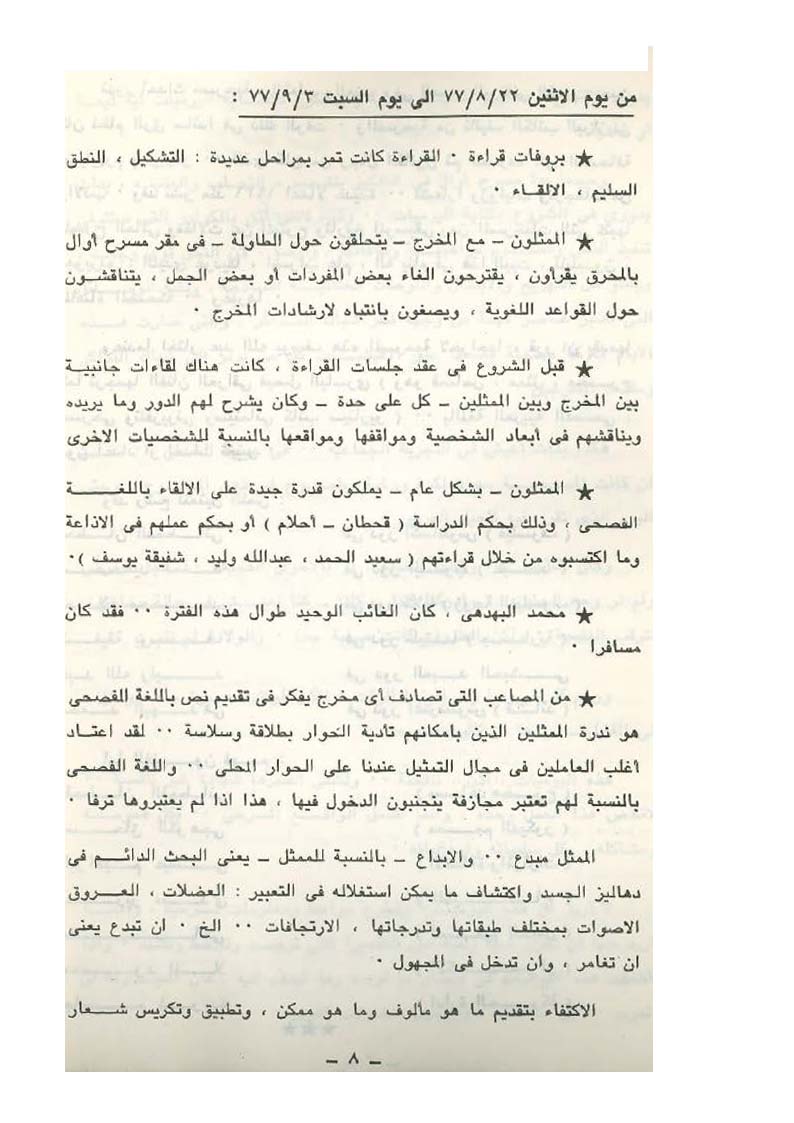 من يوم الاثنين ٧٧/٨/٢٢ الى يوم السبت ٧٧/٩/٣ :
★ بروفات قراءة ٠ القراءة كانت تمر بمراحل عديدة : التشكيل ، النطق
السليم ، الالقـاء ٠
★ الممثلون – مع المخرج – يتحلقون حول الطاولة – فى مقر مسرح أوال
بالمحرق يقرأون ، يقترحون الغاء بعض المفردات أو بعض الجمل ، يتناقشـون
حول القواعد اللغوية ، ويصغون بانتباه لارشادات المخرج ٠
★ قبل الشروع فى عقد جلسات القراءة ، كانت هناك لقاءات جانبية
بين المخرج وبين الممثلين – كل على حدة – وكان يشرح لهم الدور وما يريده
ويناقشهم فى أبعاد الشخصية ومواقفها ومواقعها بالنسبة للشخصيات الاخرى
★ الممثلون – بشكل عام – يملكون قدرة جيدة على الالقاء باللغـــــة
الفصحى ، وذلك بحكم الدراسة ( قحطان – أحلام ) أو بحكم عملهم فى الاذاعة
وما اكتسبوه من خلال قراءتهم ( سعيد الحمد ، عبدالله وليد ، شفيقة يوسف ) ٠
★ محمد البهدهى ، كان الغائب الوحيد طوال هذه الفترة ٠٠ فقد كان
مسافرا ٠
★ من المصاعب التى تصادف أى مخرج يفكر فى تقديم نص باللغة الفصحى
هو ندرة الممثلين الذين بامكانهم تأدية الحوار بطلاقة وسلاسة ٠٠ لقد اعتـاد
أغلب العاملين فى مجال التمثيل عندنا على الحوار المحلى ٠٠ واللغة الفصحى
بالنسبة لهم تعتبر مجازفة يتجنبون الدخول فيها ، هذا اذا لم يعتبروها ترفا ٠
الممثل مبدع ٠٠ والابداع – بالنسبة للممثل – يعنى البحث الدائـم فى
دهاليز الجسد واكتشاف ما يمكن استغلاله فى التعبير : العضلات ، العـروق
الاصوات بمختلف طبقاتها وتدرجاتها ، الارتجافات ٠٠ الخ ٠ ان تبدع يعنى
ان تغامر ، وان تدخل فى المجهول ٠
الاكتفاء بتقديم ما هو مألوف وما هو ممكن ، وتطبيق وتكريس شــعار
– ٨ –